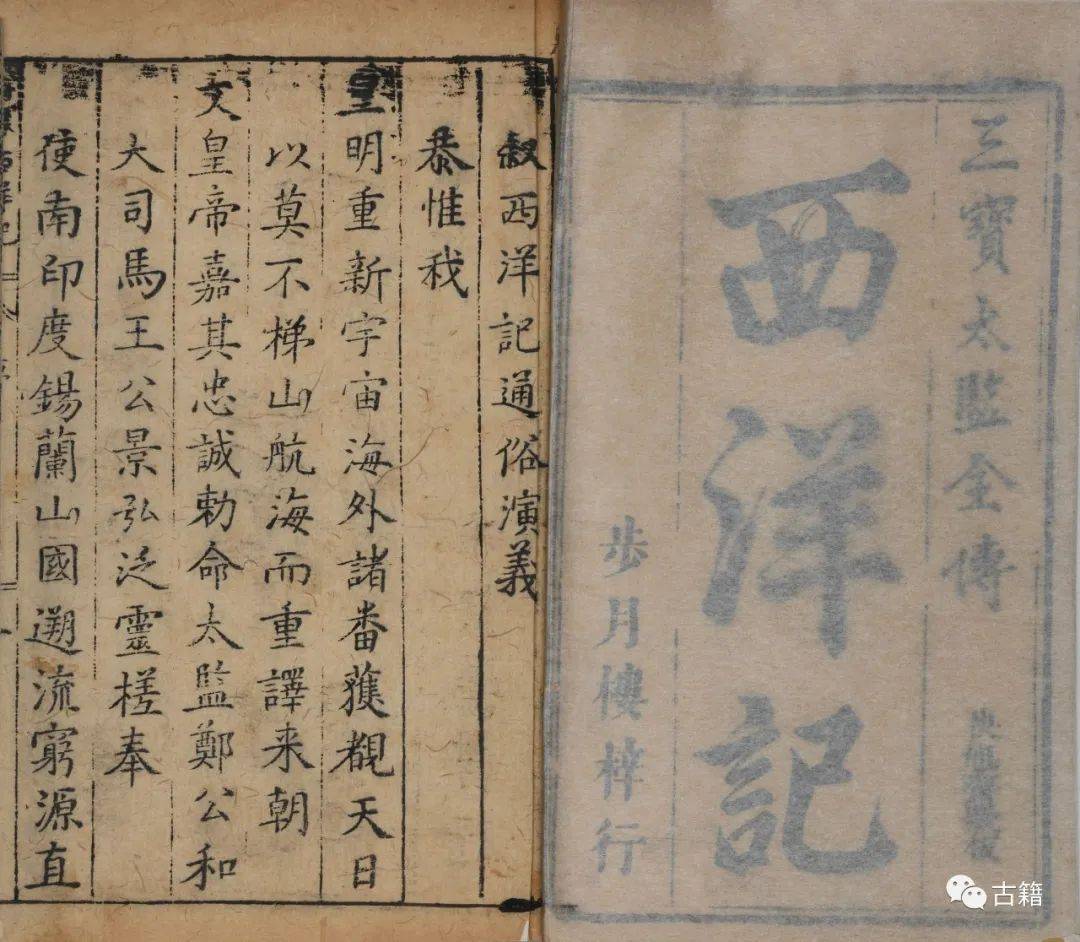 三寶太監全傳
西洋記
步月樓梓行
敍西洋記通俗演義
恭惟我
皇明重新宇宙海外諸番獲覩天日
以莫不梯山航海而重譯来朝
文皇帝嘉其忠誠勅命太監鄭公和
大司馬王公景弘泛靈槎奉
使南印度錫蘭山國遡流窮源直
古籍